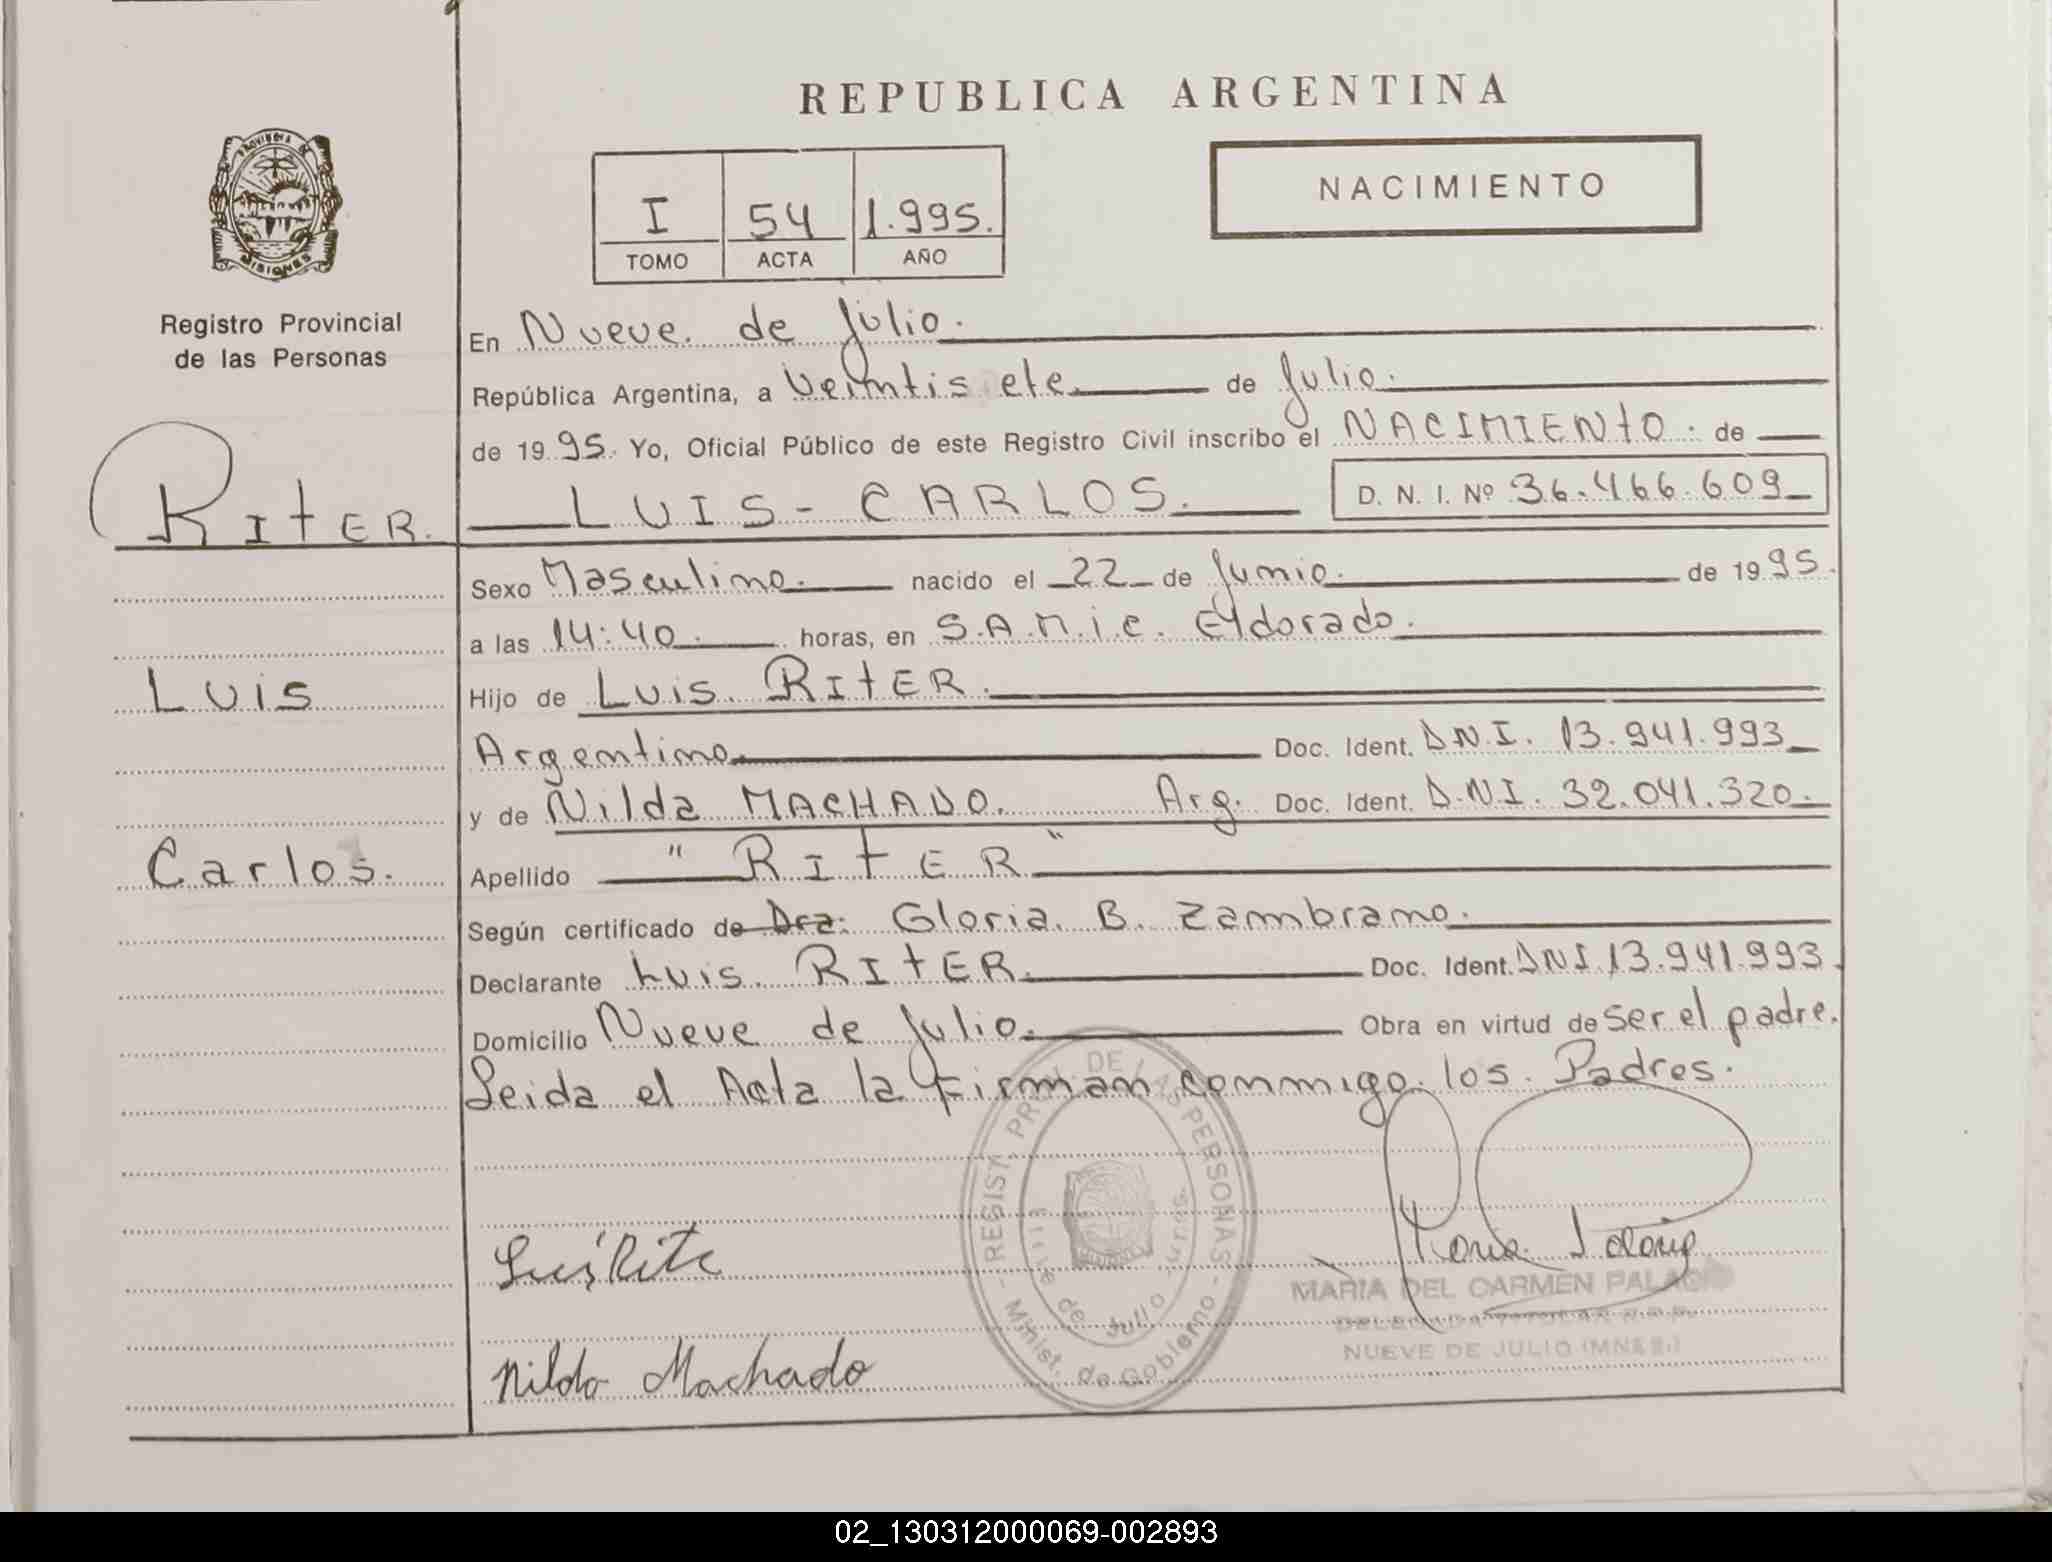 REPUBLICA ARGENTINA
NACIMIENTO
I 54 1.995.
TOMO ACTA AÑO
PROVINCIA DE MISIONES
Registro Provincial
de las Personas
RItER.
Luis
Carlos.
En Nueve de Julio.
República Argentina, a veintisiete de Julio.
de 1995. Yo, Oficial Público de este Registro Civil inscribo el NACIMIENtO. de
LUIS-CARLOS. D. N. I. Nº 36.466.609
Sexo Masculino. nacido el 22 de Junio. de 1995.
a las 14:40. horas, en S.A.M.i.c. Eldorado.
Hijo de Luis RItER.
Argentino Doc. Ident. D.N.I. 13.941.993
y de Nilda MACHADO. Arg. Doc. Ident. D.N.I. 32.041.320.
Apellido "RItER"
Según certificado de Dra: Gloria B. Zambrano.
Declarante Luis RItER. Doc. Ident. DNI 13.941.993.
Domicilio Nueve de Julio. Obra en virtud de ser el padre.
Leida el Acta la Firman conmigo los Padres.
REGIST. PROV. DE LAS PERSONAS
Minist. de Gobierno
de Julio
Luis Rite
Nilda Machado
Maria Palacio
MARIA DEL CARMEN PALACIO
DELEGADA TITULAR R.P.P.
NUEVE DE JULIO (MNES.)
02_130312000069-002893